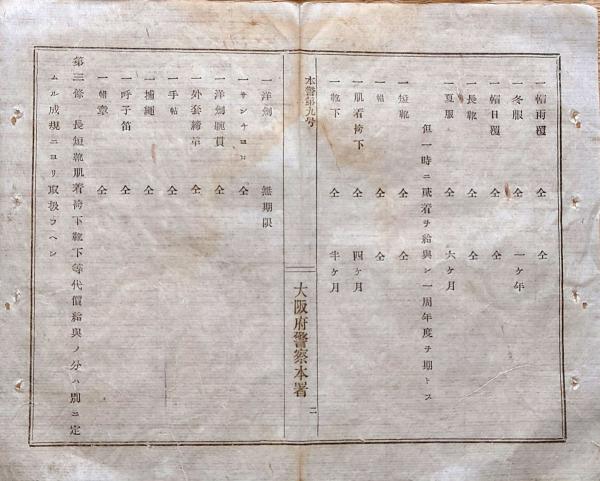 一帽雨覆 仝 仝
一冬服 仝 一ケ年
一帽日覆 仝 仝
一長靴 仝 仝
一夏服 仝 六ケ月
但一時ニ貳着ヲ給與シ一周年度ヲ期トス
一短靴 仝 仝
一帽 仝 仝
一肌着袴下 仝 四ケ月
一靴下 仝 半ケ月
本警第九号
大阪府警察本署
二
一洋劍 無期限
一サンチヨコ 仝
一洋劍腕貫 仝
一外套締革 仝
一手帖 仝
一捕繩 仝
一呼子笛 仝
一帽章 仝
第三條 長短靴肌着袴下靴下等代價給與ノ分ハ別ニ定
ムル成規ニヨリ取扱フヘシ